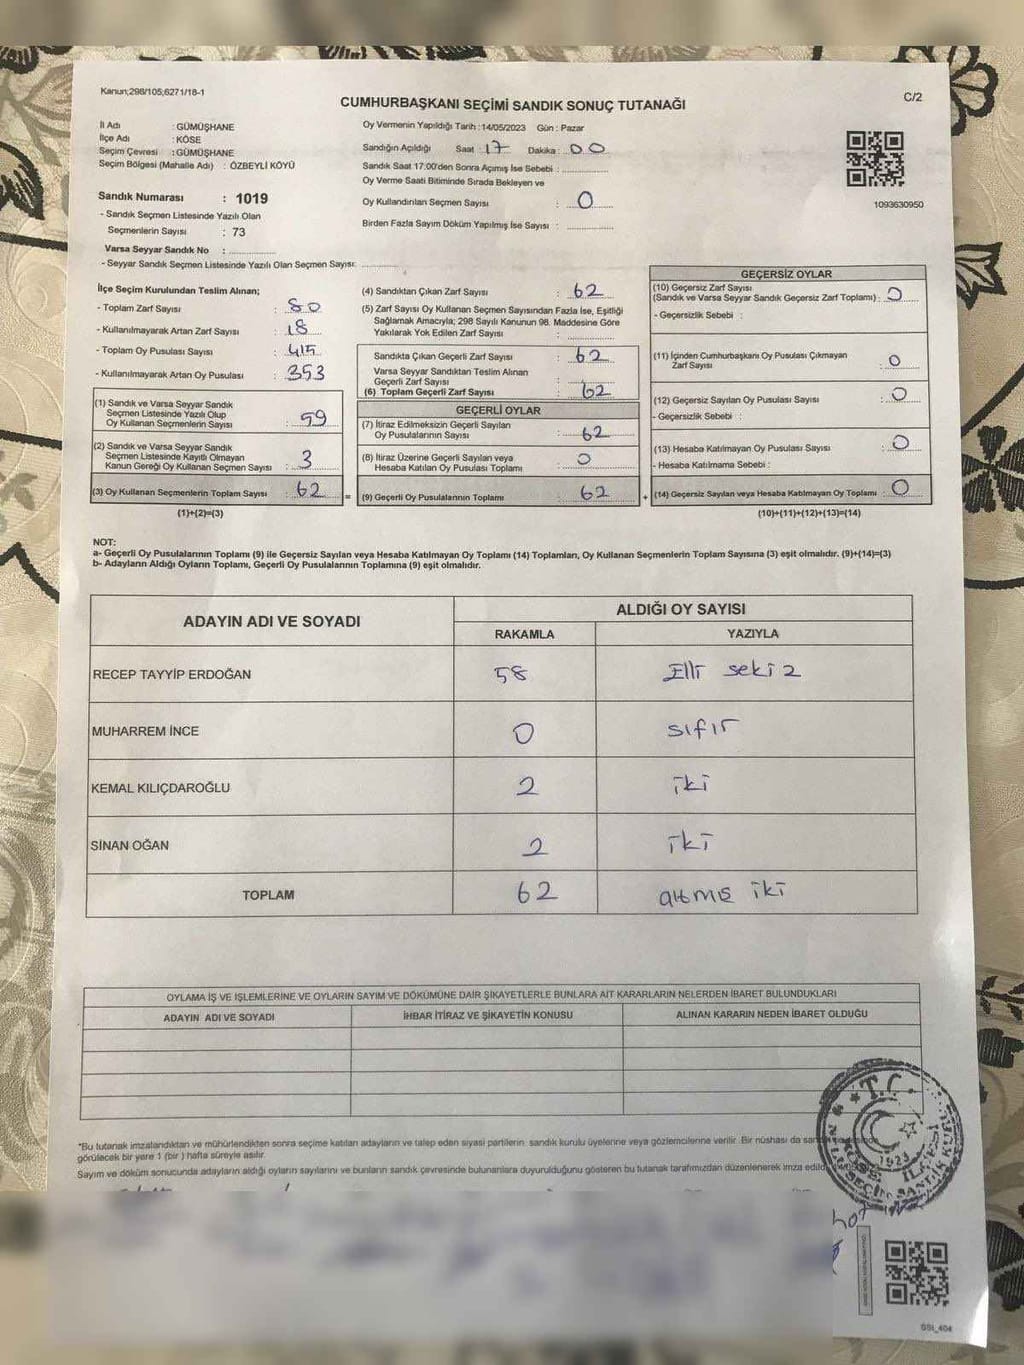 Kanun;298/105;6271/18-1
CUMHURBAŞKANI SEÇİMİ SANDIK SONUÇ TUTANAĞI
C/2
İl Adı : GÜMÜŞHANE
İlçe Adı : KÖSE
Seçim Çevresi : GÜMÜŞHANE
Seçim Bölgesi (Mahalle Adı) : ÖZBEYLİ KÖYÜ
Oy Vermenin Yapıldığı Tarih : 14/05/2023 Gün : Pazar
Sandığın Açıldığı Saat : 17 Dakika : 00
Sandık Saat 17:00'den Sonra Açımış İse Sebebi :
Oy Verme Saati Bitiminde Sırada Bekleyen ve
Oy Kullandırılan Seçmen Sayısı : 0
Birden Fazla Sayım Döküm Yapılmış İse Sayısı :
1093630950
Sandık Numarası : 1019
- Sandık Seçmen Listesinde Yazılı Olan
Seçmenlerin Sayısı : 73
Varsa Seyyar Sandık No :
- Seyyar Sandık Seçmen Listesinde Yazılı Olan Seçmen Sayısı:
İlçe Seçim Kurulundan Teslim Alınan;
- Toplam Zarf Sayısı : 80
- Kullanılmayarak Artan Zarf Sayısı : 18
- Toplam Oy Pusulası Sayısı : 415
- Kullanılmayarak Artan Oy Pusulası : 353
(1) Sandık ve Varsa Seyyar Sandık
Seçmen Listesinde Yazılı Olup
Oy Kullanan Seçmenlerin Sayısı : 59
(2) Sandık ve Varsa Seyyar Sandık
Seçmen Listesinde Kayıtlı Olmayan
Kanun Gereği Oy Kullanan Seçmen Sayısı : 3
(3) Oy Kullanan Seçmenlerin Toplam Sayısı : 62 =
(1)+(2)=(3)
(4) Sandıktan Çıkan Zarf Sayısı : 62
(5) Zarf Sayısı Oy Kullanan Seçmen Sayısından Fazla İse, Eşitliği
Sağlamak Amacıyla; 298 Sayılı Kanunun 98. Maddesine Göre
Yakılarak Yok Edilen Zarf Sayısı :
Sandıkta Çıkan Geçerli Zarf Sayısı : 62
Varsa Seyyar Sandıktan Teslim Alınan
Geçerli Zarf Sayısı :
(6) Toplam Geçerli Zarf Sayısı : 62
GEÇERLİ OYLAR
(7) İtiraz Edilmeksizin Geçerli Sayılan
Oy Pusulalarının Sayısı : 62
(8) İtiraz Üzerine Geçerli Sayılan veya
Hesaba Katılan Oy Pusulası Toplamı : 0
(9) Geçerli Oy Pusulalarının Toplamı : 62 +
GEÇERSİZ OYLAR
(10) Geçersiz Zarf Sayısı
(Sandık ve Varsa Seyyar Sandık Geçersiz Zarf Toplamı) : 0
- Geçersizlik Sebebi :
(11) İçinden Cumhurbaşkanı Oy Pusulası Çıkmayan
Zarf Sayısı : 0
(12) Geçersiz Sayılan Oy Pusulası Sayısı : 0
- Geçersizlik Sebebi :
(13) Hesaba Katılmayan Oy Pusulası Sayısı : 0
- Hesaba Katılmama Sebebi :
(14) Geçersiz Sayılan veya Hesaba Katılmayan Oy Toplamı : 0
(10)+(11)+(12)+(13)=(14)
NOT:
a- Geçerli Oy Pusulalarının Toplamı (9) ile Geçersiz Sayılan veya Hesaba Katılmayan Oy Toplamı (14) Toplamları, Oy Kullanan Seçmenlerin Toplam Sayısına (3) eşit olmalıdır. (9)+(14)=(3)
b- Adayların Aldığı Oyların Toplamı, Geçerli Oy Pusulalarının Toplamına (9) eşit olmalıdır.
ADAYIN ADI VE SOYADI
ALDIĞI OY SAYISI
RAKAMLA YAZIYLA
RECEP TAYYİP ERDOĞAN 58 Elli sekiz
MUHARREM İNCE 0 sıfır
KEMAL KILIÇDAROĞLU 2 iki
SİNAN OĞAN 2 iki
TOPLAM 62 altmış iki
OYLAMA İŞ VE İŞLEMLERİNE VE OYLARIN SAYIM VE DÖKÜMÜNE DAİR ŞİKAYETLERLE BUNLARA AİT KARARLARIN NELERDEN İBARET BULUNDUKLARI
ADAYIN ADI VE SOYADI İHBAR İTİRAZ VE ŞİKAYETİN KONUSU ALINAN KARARIN NEDEN İBARET OLDUĞU
*Bu tutanak imzalandıktan ve mühürlendikten sonra seçime katılan adayların ve talep eden siyasi partilerin sandık kurulu üyelerine veya gözlemcilerine verilir. Bir nüshası da
görülecek bir yere 1 (bir) hafta süreyle asılır.
Sayım ve döküm sonucunda adayların aldığı oyların sayılarını ve bunların sandık çevresinde bulunanlara duyurulduğunu gösteren bu tutanak tarafımızdan düzenlenerek imza edildi.
T.C.
KÖSE İLÇESİ
1923
GSI_404